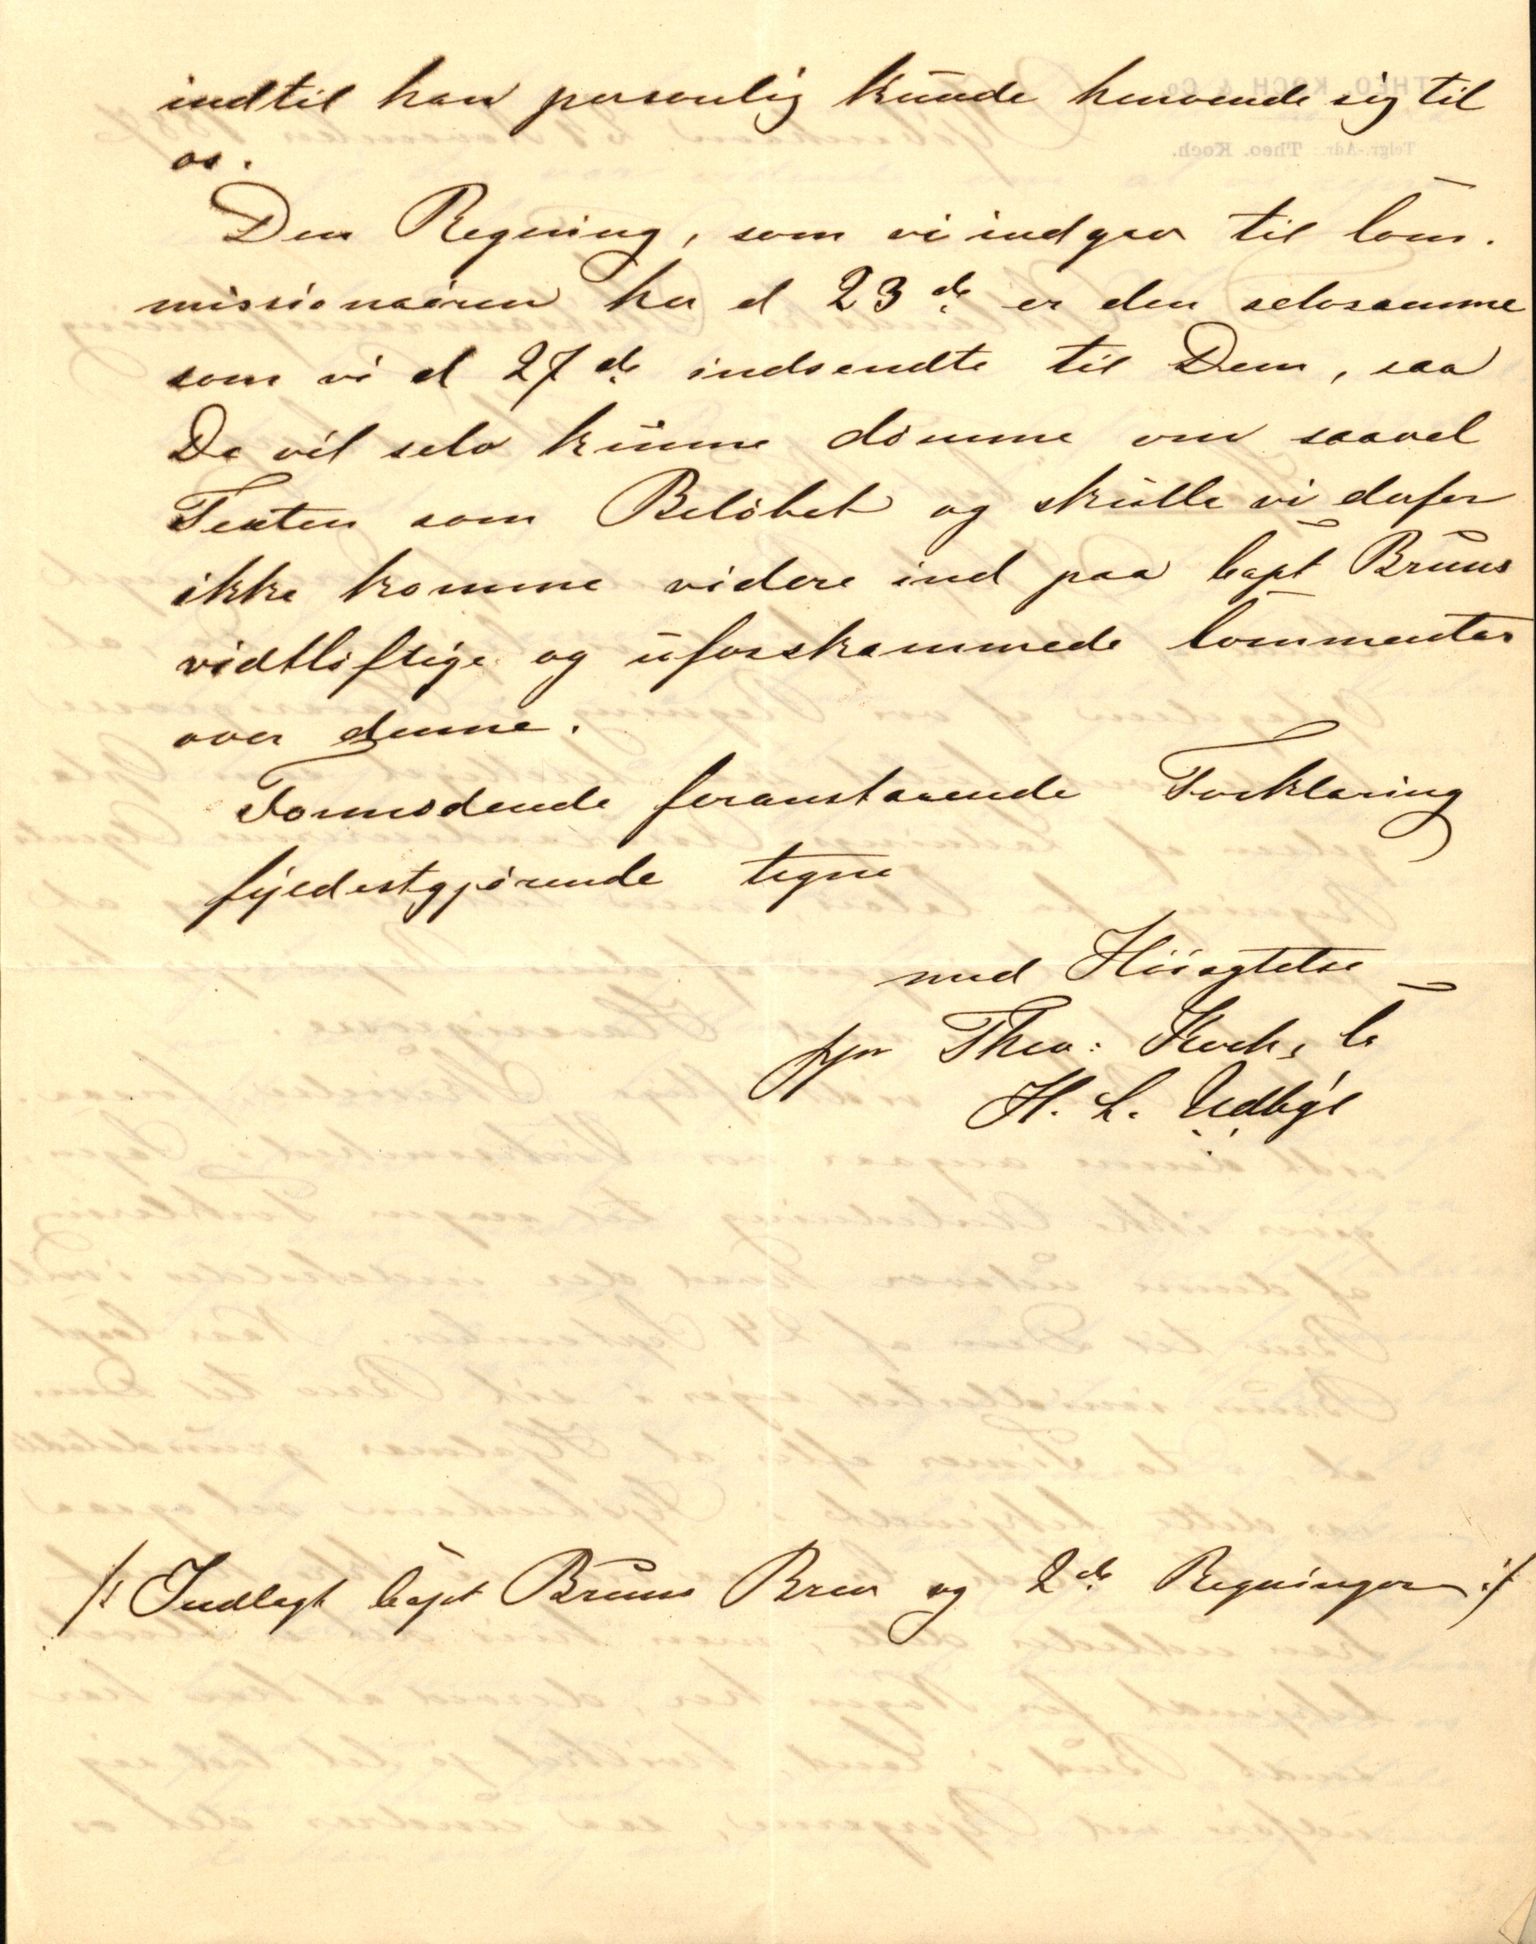 indtil han personlig kunde henvende sig til
os.
Den Regning, som vi indgav til Com-
missionæren her d 23de er den selvsamme
som vi d 27de indsendte til Dem, saa
De vil selv kunne dömme om saavel
Texten som Belöbet og skulle vi derfor
ikke komme videre ind paa Capt Bruns
vidtlöftige og uforskammede Commentar
over denne.
Formodende foranstaaende Forklaring
fyldestgjörende tegne
med Höiagtelse
ppr Theo: Koch & Co
H. L. Udbye
/: Indlagt Capt Bruns Brev og 2de Regninger :/